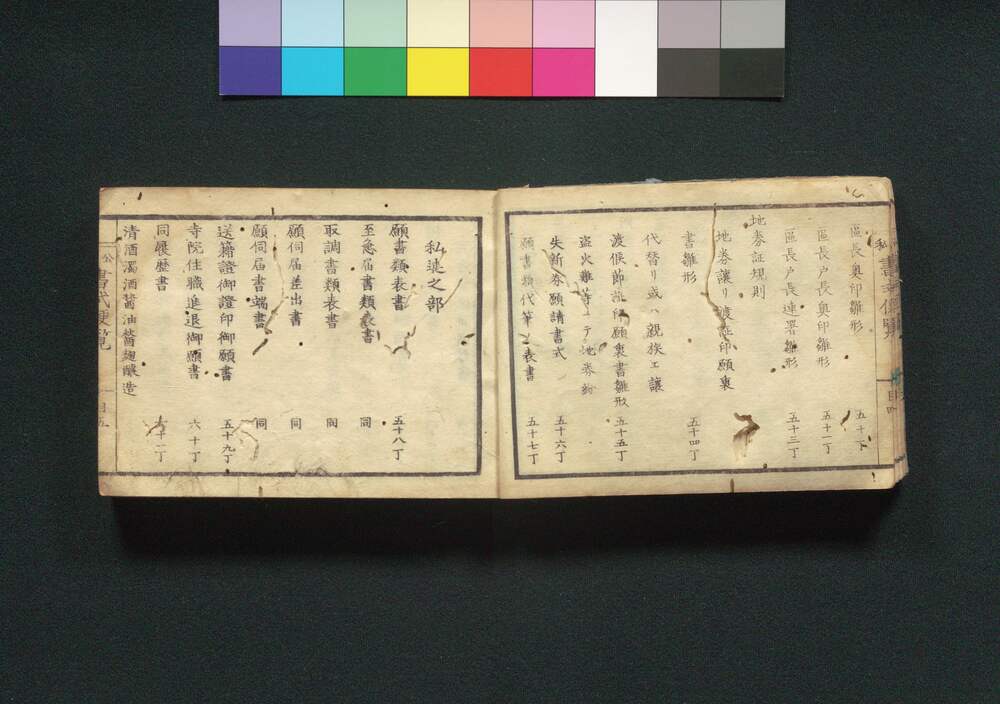 區長奥印雛形 五十丁
區長戸長奥印雛形 五十一丁
區長戸長連署雛形 五十三丁
地券証規則
地券讓リ渡証印願裏
書雛形 五十四丁
代替リ或ハ親族エ讓
渡候節証印願裏書雛形 五十五丁
盗火難等ニテ地券紛
失新券願請書式 五十六丁
願書類代筆ノ表書 五十七丁
私
書式便覧
目四
私述之部
願書類表書 五十八丁
至急届書類表書 同
取調書類表書 同
願伺届差出書 同
願伺届書端書 同
送籍證御證印御願書 五十九丁
寺院住職進退御願書 六十丁
同履歴書 六十一丁
清酒濁酒醤油醤麹釀造
公
書式便覧
目五